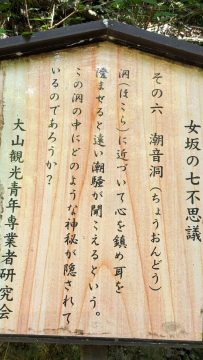 女坂の七不思議
その六　潮音洞（ちょうおんどう）
洞（ほこら）に近づいて心を鎮め耳を
澄ませると遠い潮騒が聞こえるという。
この洞の中にどのような神秘が隠されて
いるのであろうか？
大山観光青年専業者研究会